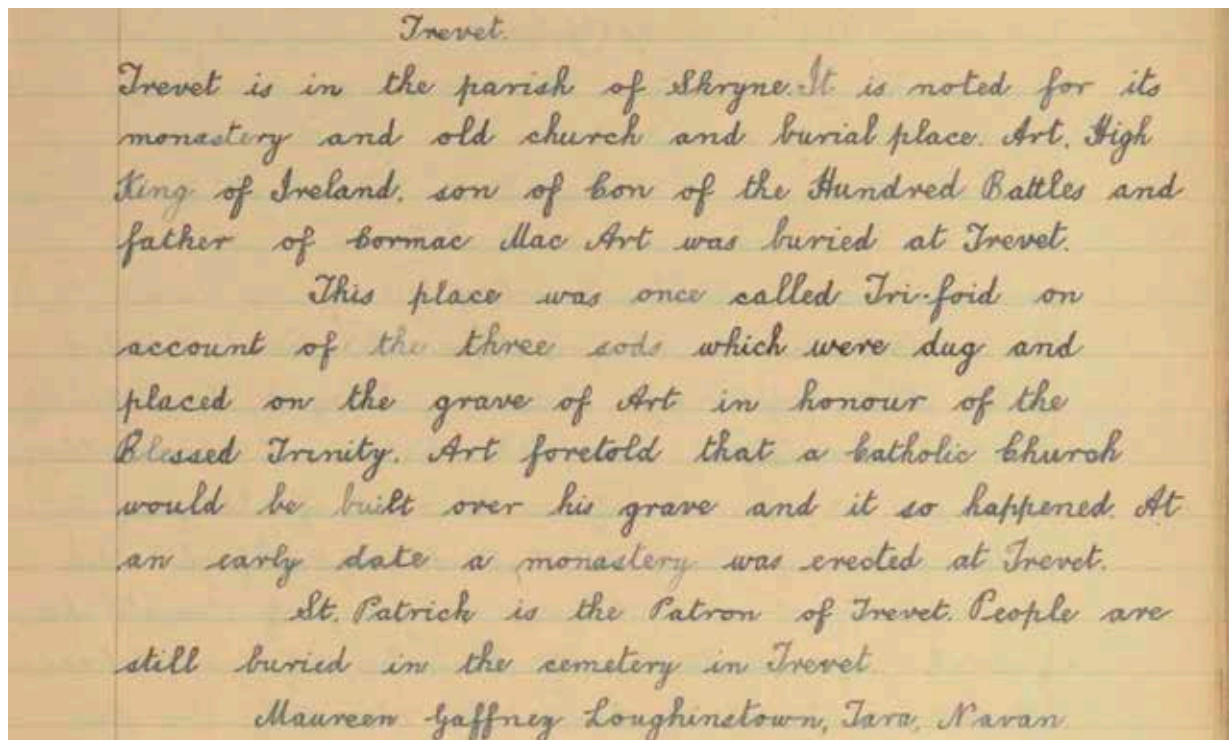 Trevet.
Trevet is in the parish of Skryne. It is noted for its
monastery and old church and burial place. Art, High
King of Ireland, son of Con of the Hundred Battles and
father of Cormac Mac Art was buried at Trevet.
This place was once called Tri-foid on
account of the three sods which were dug and
placed on the grave of Art in honour of the
Blessed Trinity. Art foretold that a Catholic Church
would be built over his grave and it so happened. At
an early date a monastery was erected at Trevet.
St. Patrick is the Patron of Trevet. People are
still buried in the cemetery in Trevet
Maureen Gaffney Loughinstown, Tara, Navan